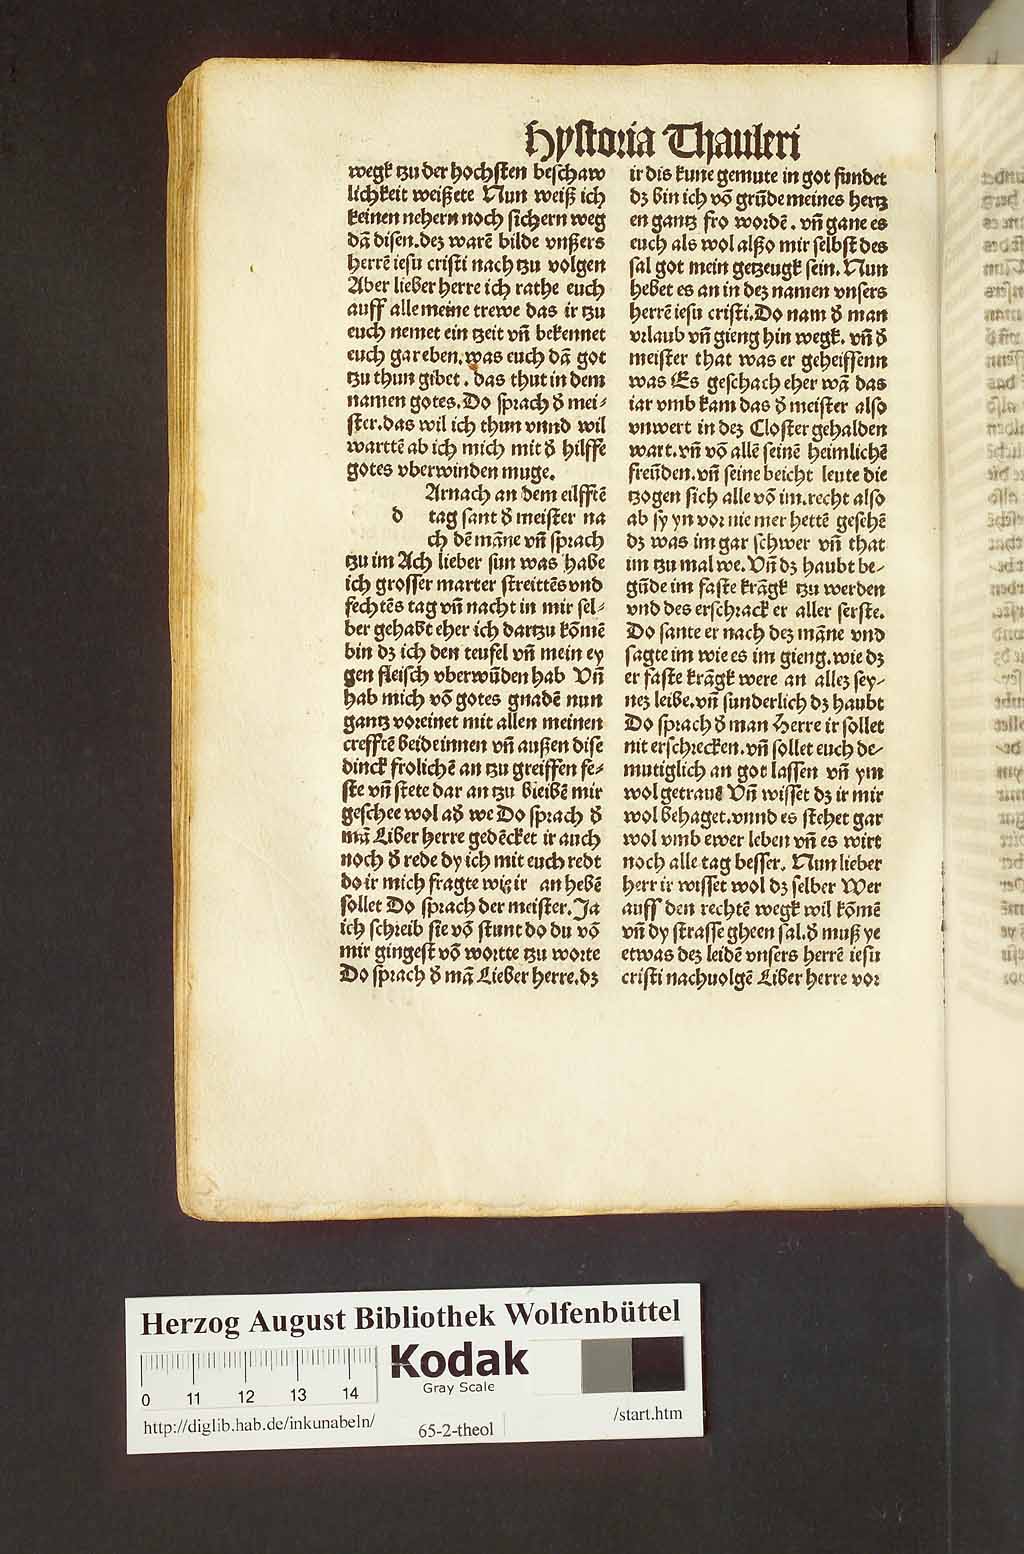 Hystoria Thauleri
wegk tzu der hochsten beschaw
lichkeit weißete Nun weiß ich
keinen nehern noch sichern weg
dā disen.dez warē bilde vnßers
herrē iesu cristi nach tzu volgen
Aber lieber herre ich rathe euch
auff alle meine trewe das ir tzu
euch nemet ein tzeit vn̄ bekennet
euch gar eben.was euch dā got
tzu thun gibet. das thut in dem
namen gotes.Do sprach d̕ mei-
ster.das wil ich thun vnnd wil
warttē ab ich mich mit d̕ hilffe
gotes vberwinden muge.
Arnach an dem eilfftē
d tag sant d̕ meister na
ch dē māne vn̄ sprach
tzu im Ach lieber sun was habe
ich grosser marter streittēs vnd
fechtēs tag vn̄ nacht in mir sel-
ber gehabt eher ich dartzu kōmē
bin dz ich den teufel vn̄ mein ey
gen fleisch vberwūden hab Vn̄
hab mich vō gotes gnadē nun
gantz voreinet mit allen meinen
crefftē beide innen vn̄ außen dise
dinck frolichē an tzu greiffen fe-
ste vn̄ stete dar an tzu bleibē mir
geschee wol ad̕ we Do sprach d̕
mā Liber herre gedēcket ir auch
noch d̕ rede dy ich mit euch redt
do ir mich fragte wie ir an hebē
sollet Do sprach der meister.Ja
ich schreib sie vō stunt do du vō
mir gingest vō wortte tzu worte
Do sprach d̕ mā Lieber herre.dz
ir dis kune gemute in got fundet
dz bin ich vō grūde meines hertz
en gantz fro wordē. vn̄ gane es
euch als wol alßo mir selbst des
sal got mein getzeugk sein. Nun
hebet es an in dez namen vnsers
herrē iesu cristi.Do nam d̕ man
vrlaub vn̄ gieng hin wegk. vn̄ d̕
meister that was er geheissenn
was Es geschach eher wā das
iar vmb kam das d̕ meister also
vnwert in dez Closter gehalden
wart.vn̄ vō allē seinē heimlichē
freūden.vn̄ seine beicht leute die
tzogen sich alle vō im.recht also
ab sy yn vor nie mer hettē gesehē
dz was im gar schwer vn̄ that
im tzu mal we. Vn̄ dz haubt be-
gūde im faste krāgk tzu werden
vnd des erschrack er aller serste.
Do sante er nach dez māne vnd
sagte im wie es im gieng.wie dz
er faste krāgk were an allez sey-
nez leibe.vn̄ sunderlich dz haubt
Do sprach d̕ man Herre ir sollet
nit erschrecken.vn̄ sollet euch de-
mutiglich an got lassen vn̄ ym
wol getraue Vn̄ wisset dz ir mir
wol behaget.vnnd es stehet gar
wol vmb ewer leben vn̄ es wirt
noch alle tag besser. Nun lieber
herr ir wisset wol dz selber Wer
auff den rechtē wegk wil kōmē
vn̄ dy strasse gheen sal.d̕ muß ye
etwas dez leidē vnsers herrē iesu
cristi nachuolgē Liber herre vor
Herzog August Bibliothek Wolfenbüttel
Kodak
Gray Scale
0 11 12 13 14
http://diglib.hab.de/inkunabeln/
65-2-theol
/start.htm